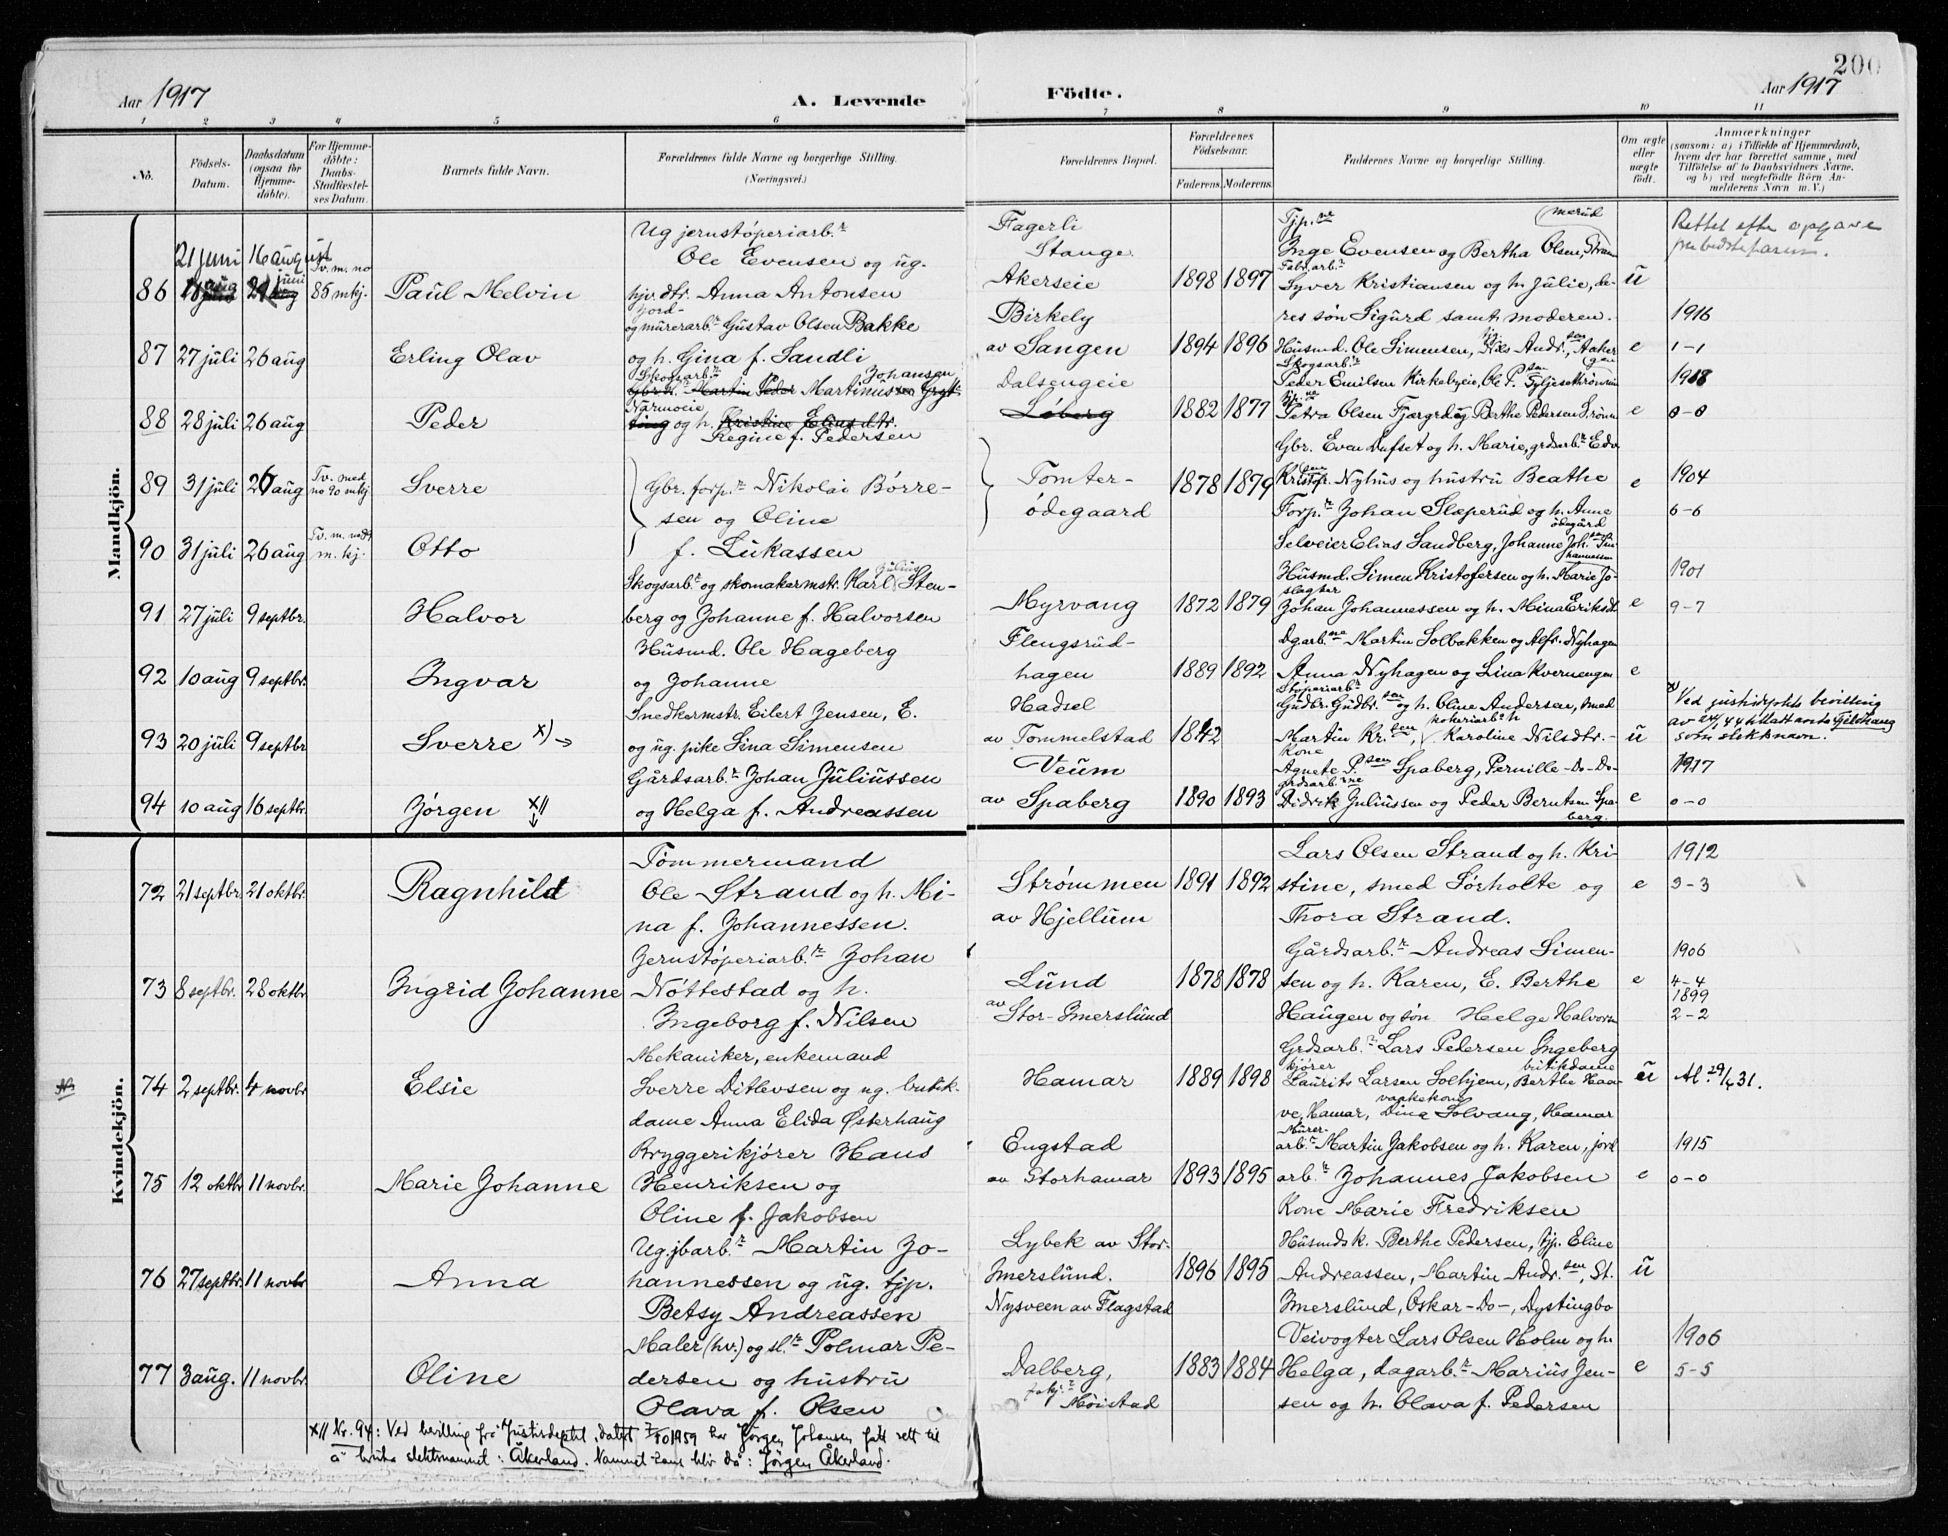 200
Aar 1917
A. Levende
Födte.
Aar 1917
1 2 3 4 5 6 7 8 9 10 11
No.
Födsels-Datum.
Daabsdatum (ogsaa for Hjemme-døbte).
For Hjemme-døbte: Daabs-Stadfæstel-ses Datum.
Barnets fulde Navn.
Forældrenes fulde Navne og borgerlige Stilling. (Næringsvei.)
Forældrenes Bopæl.
Forældrenes Fødselsaar.
Faderens. Moderens.
Faddernes Navne og borgerlige Stilling.
Om ægte eller uægte født.
Anmærkninger
(saasom: a) i Tilfælde af Hjemmedaab,
hvem der har forrettet samme, med
Tilføielse af to Daabsvidners Navne,
og b) ved uægtefødte Börn An-
melderens Navn m. V.)
Mandkjön.
21 juni 16 august
86 85 mkj. Paul Melvin
Tv. m. no
Ug jernstøperiarb.r
Ole Evensen og ug.
hjv. dtr. Anna Antonsen
Fagerli
Stange
Akerseie
1898 1897
Tjp.ne
Inge Evensen og Bertha Olsen,
Fabr.arb.r
Syver Kristiansen og h. Julie, de-
res søn Sigurd samt moderen.
ü
Rettet efter opgave
87 27 juli 26 aug Erling Olav
Jord-
og murerarb.r Gustav Olsen Bakke
og h. Gina f. Sandli
Birkely
av Sangen
1894 1896
Husmd. Ole Simensen,
e
1916
1-1
88 28 juli 26 aug Peder
Skogsarb.r Johansen
Martinus
Narmoeie
og h. Kristine Eliasdtr.
Regine f. Pedersen
Dalsengeie
Løberg
1882 1877
Skogsarb.r
Peder Emilsen Kirkebyeie, Ole P.sen
Petra Olsen og Berthe Pedersen
e
1908
0-0
89 31 juli 26 aug Tv. med no 90 mkj Sverre
Gbr. forp.r Nikolai Børre-
sen og Oline
f. Lukassen
Tomter-
ødegaard
1878 1879
Gbr. Even Dufset og h. Marie, grdsarb.r Edv.
Nyhus og hustru Beathe
e
1904
6-6
90 31 juli 26 aug m. kj. Otto
Forp.r Johan Slæperud og h. Anne
ødegård
Selveier Elias Sandberg, Johanne Joh.sen
91 27 juli 9 septbr. Halvor
Skogsarb.r og skomakermstr. Karl Julius Sten-
berg og Johanne f. Halvorsen
Myrvang
1872 1879
Husmd. Simen Kristofersen og h. Marie Jo-
slagter
Johan Johannessen og h. Mina Eriksdt.
e
1901
9-7
92 10 aug 9 septbr. Ingvar
Husmd. Ole Hageberg
og Johanne
Flengsrud-
hagen
1889 1892
Dgarb.ne Martin Solbakken og Alfr. Nyhagen
Anna Nyhagen og Lina Kvernengen
e
93 20 juli 9 septbr Sverre x)
Snedkermstr. Eilert Jensen, E.
og ug. pike Lina Simensen
Hadsel
av Tommelstad
1842
Støperiarb.r
Gudbr. Gudbr.sen og h. Oline Andersen, smed
Martin Kr.sen, Karoline Nilsdtr.-
ü
Ved justisdepts bevilling
av 24/1 44 tillatt anta Gjeldhaug
som slektsnavn.
94 10 aug 16 septbr. Jørgen x//
Gårdsarb.r Johan Juliussen
og Helga f. Andreassen
Veum
av Spaberg
1890 1893
Kone
Agnete P.sen Spaberg, Pernille -Do-Do-
grdsarb.rne
Didrik Juliussen og Peder Berntsen Spa-
berg.
e
1917
0-0
Kvindekjön.
72 21 septbr. 21 oktbr. Ragnhild
Tømmermand
Ole Strand og h. Mi-
na f. Johannessen.
Strømmen
av Hjellum
1891 1892
Lars Olsen Strand og h. Kri-
stine, smed Sørholte og
Thora Strand.
e
1912
3-3
73 8 septbr. 28 oktbr. Ingrid Johanne
Jernstøperiarb.r Johan
Nøttestad og h.
Ingeborg f. Nilsen
Lund
av
Stor-Imerslund
1878 1878
Gårdsarb.r Andreas Simen-
sen og h. Karen, E. Berthe
Haugen og søn Helge Halvorsen
e
1906
4-4
1899
2-2
74 2 septbr. 4 novbr Elsie
Mekaniker, enkemand
Sverre Ditlevsen og ug. butik-
dame Anna Elida Østerhaug
Hamar
1889 1898
Grdsarb.r Lars Pedersen Ingeberg
kjører butikdame
Laurits Larsen Solhjem, Berthe Haa-
vaskekone
ve, Hamar, Dina Solvang, Hamar
ü
At. 29/6 31.
75 12 oktbr. 11 novbr. Marie Johanne
Bryggerikjører Hans
Henriksen og
Oline f. Jakobsen
Engstad
av Storhamar
1893 1895
Murer-
arb.r Martin Jakobsen og h. Karen, jord
arb.r Johannes Jakobsen
Kone Marie Fredriksen
e
1915
0-0
76 27 septbr. 11 novbr Anna
Ug. jbarb.r Martin Jo-
hannessen og ug. tjp.
Betsy Andreassen
Lybek av Stor-
Imerslund.
Nysveen av Flagstad
1896 1895
Husmdsk. Berthe Pedersen, tjp. Eline
Andreassen, Martin Andr.sen, St.
Imerslund, Oskar -Do-, Dystingbo
ü
77 3 aug. 11 novbr. Oline
Maler (hv.) og sl.r Polmar Pe-
dersen og hustru
Olava f. Olsen
Dalberg,
Møistad
1883 1884
Veivogter Lars Olsen Holm og h.
Helga, dagarb.r Marius Jen-
sen og h. Olava f. Pedersen
e
1906
5-5
x// Nr. 94: Ved bevilling fra Justisdeptet, datert 7/10 1959 har Jørgen Johansen fått rett til
å bruke slektsnavnet: Åkerland. Navnet hans blir då: Jørgen Åkerland.